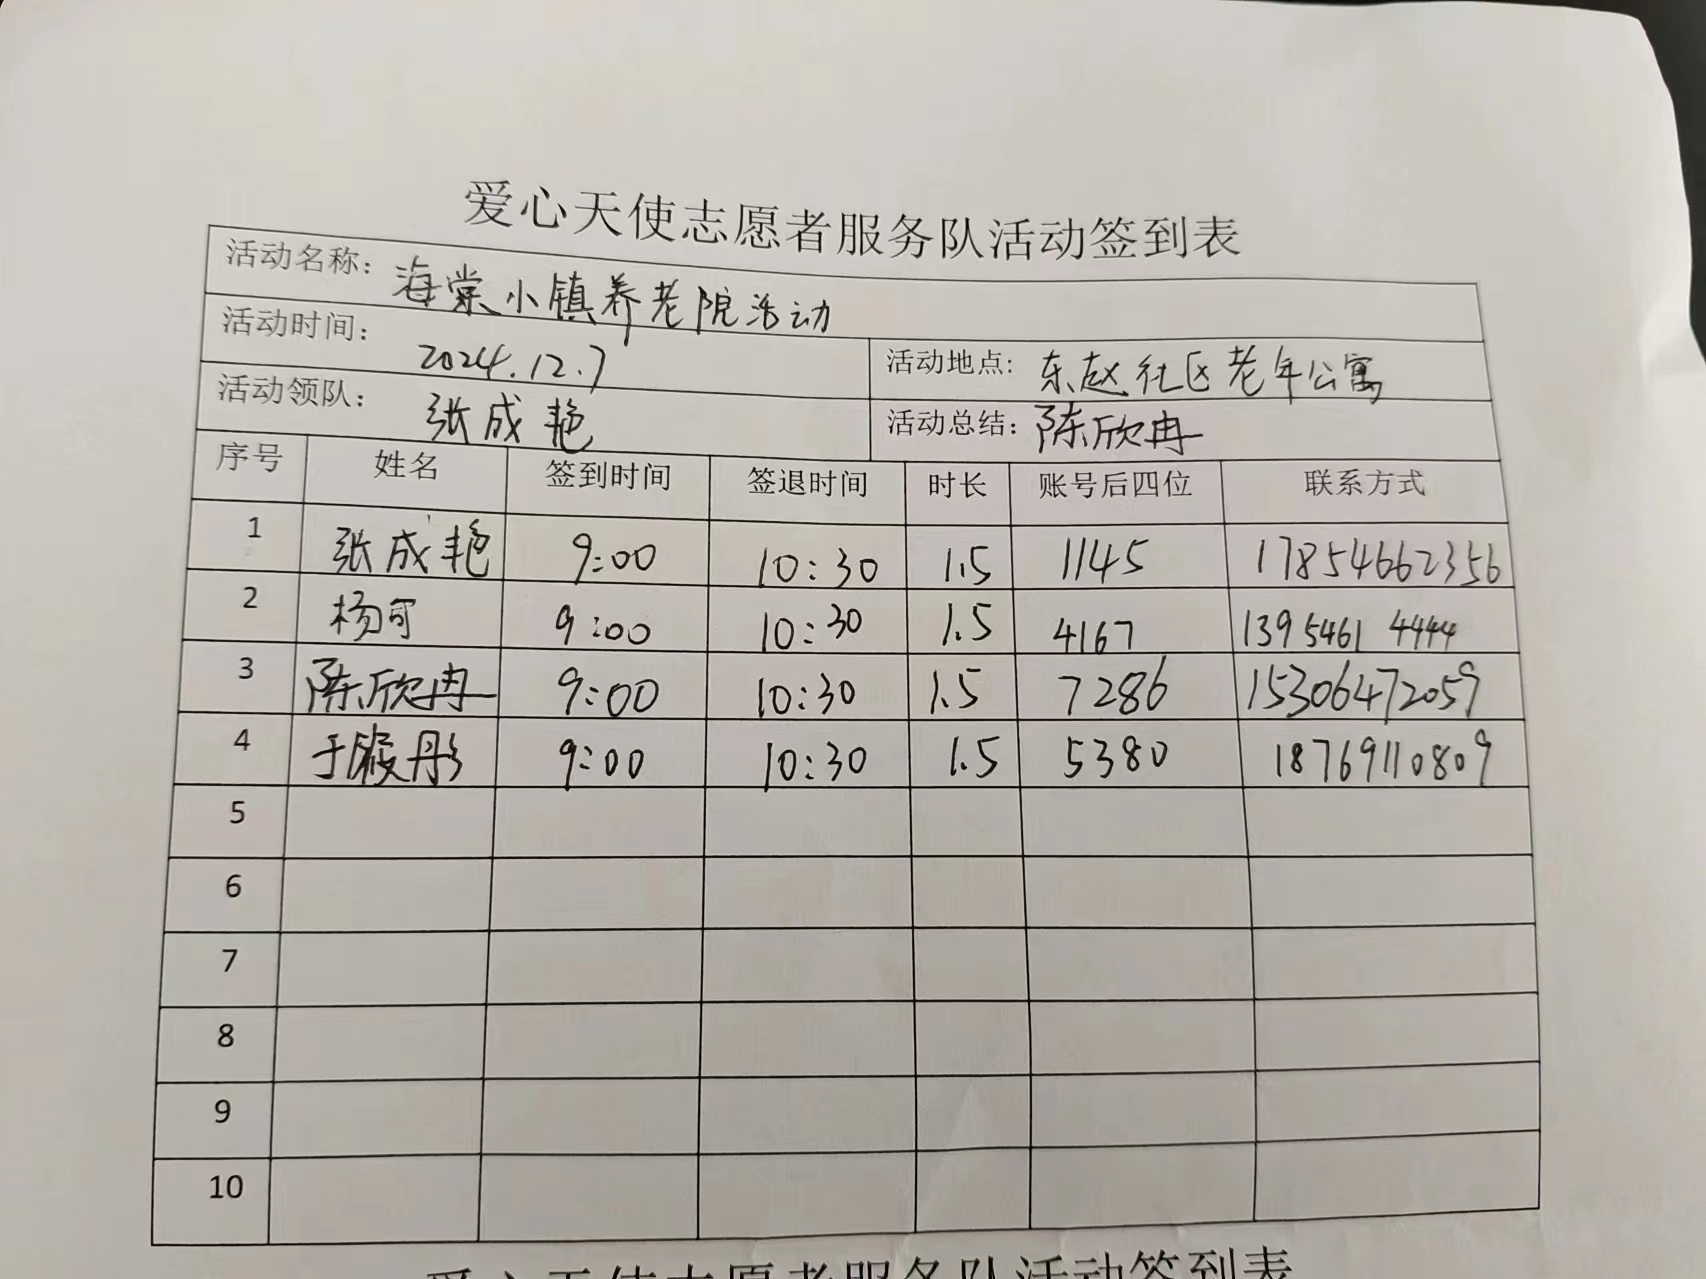 爱心天使志愿者服务队活动签到表
活动名称：海棠小镇养老院活动
活动时间：2024.12.7 活动地点：东赵社区老年公寓
活动领队：张成艳 活动总结：陈欣冉
序号 姓名 签到时间 签退时间 时长 账号后四位 联系方式
1 张成艳 9:00 10:30 1.5 1145 17854662356
2 杨可 9:00 10:30 1.5 4167 13954614444
3 陈欣冉 9:00 10:30 1.5 7286 15306472059
4 于 彤 9:00 10:30 1.5 5380 18769110809
5
6
7
8
9
10
爱心天使志愿者服务队活动签到表